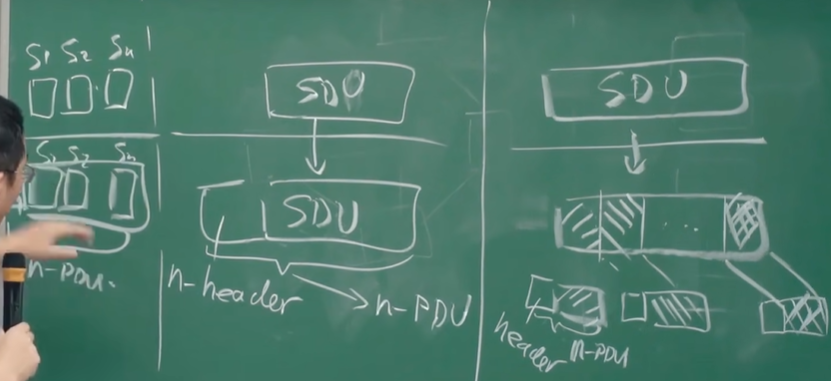 S1 S2 Sn
S1 S2 Sn
n-PDU
SDU
SDU
n-header
n-PDU
SDU
...
header
n-PDU